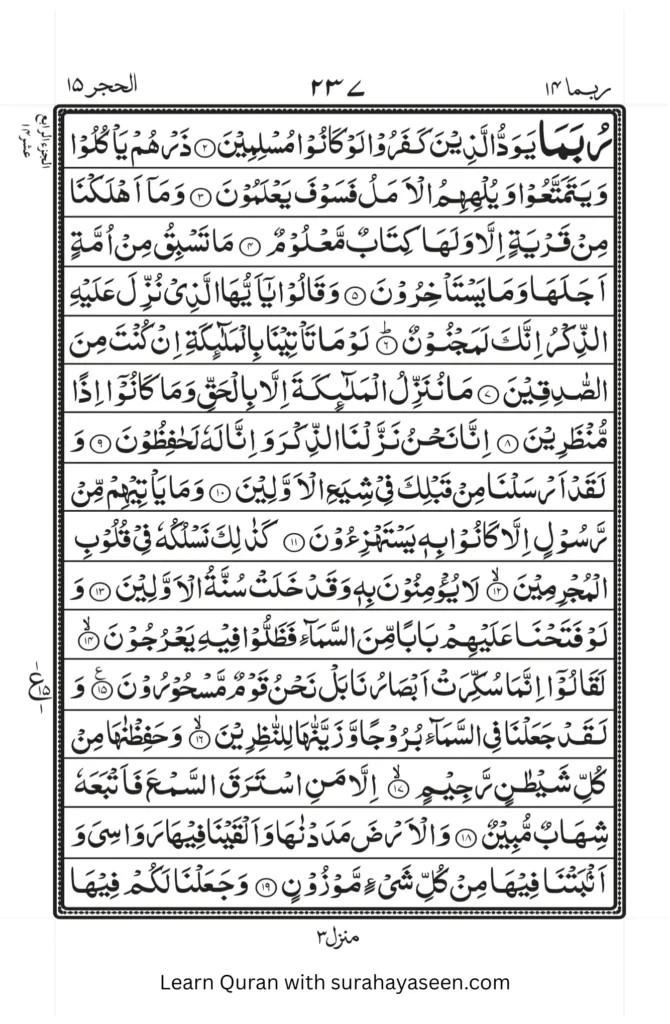 ربما ۱۴
۲۳۷
الحجر ۱۵
الجزء الرابع عشر ۱۴
رُبَمَا يَوَدُّ الَّذِيۡنَ كَفَرُوۡا لَوۡ كَانُوۡا مُسۡلِمِيۡنَ ﴿۲﴾ ذَرۡهُمۡ يَاۡكُلُوۡا
وَيَتَمَتَّعُوۡا وَيُلۡهِهِمُ الۡاَمَلُ فَسَوۡفَ يَعۡلَمُوۡنَ ﴿۳﴾ وَمَاۤ اَهۡلَكۡنَا
مِنۡ قَرۡيَةٍ اِلَّا وَلَهَا كِتَابٌ مَّعۡلُوۡمٌ ﴿۴﴾ مَا تَسۡبِقُ مِنۡ اُمَّةٍ
اَجَلَهَا وَمَا يَسۡتَاۡخِرُوۡنَ ﴿۵﴾ وَقَالُوۡا يٰۤاَيُّهَا الَّذِىۡ نُزِّلَ عَلَيۡهِ
الذِّكۡرُ اِنَّكَ لَمَجۡنُوۡنٌ ؕ﴿۶﴾ لَوۡمَا تَاۡتِيۡنَا بِالۡمَلٰۤـئِكَةِ اِنۡ كُنۡتَ مِنَ
الصّٰدِقِيۡنَ ﴿۷﴾ مَا نُنَزِّلُ الۡمَلٰۤـئِكَةَ اِلَّا بِالۡحَقِّ وَمَا كَانُوۡۤا اِذًا
مُّنۡظَرِيۡنَ ﴿۸﴾ اِنَّا نَحۡنُ نَزَّلۡنَا الذِّكۡرَ وَاِنَّا لَهٗ لَحٰـفِظُوۡنَ ﴿۹﴾ وَ
لَقَدۡ اَرۡسَلۡنَا مِنۡ قَبۡلِكَ فِىۡ شِيَعِ الۡاَوَّلِيۡنَ ﴿۱۰﴾ وَمَا يَاۡتِيۡهِمۡ مِّنۡ
رَّسُوۡلٍ اِلَّا كَانُوۡا بِهٖ يَسۡتَهۡزِءُوۡنَ ﴿۱۱﴾ كَذٰلِكَ نَسۡلُكُهٗ فِىۡ قُلُوۡبِ
الۡمُجۡرِمِيۡنَ ۙ﴿۱۲﴾ لَا يُؤۡمِنُوۡنَ بِهٖ وَقَدۡ خَلَتۡ سُنَّةُ الۡاَوَّلِيۡنَ ﴿۱۳﴾ وَ
لَوۡ فَتَحۡنَا عَلَيۡهِمۡ بَابًا مِّنَ السَّمَآءِ فَظَلُّوۡا فِيۡهِ يَعۡرُجُوۡنَ ۙ﴿۱۴﴾
لَقَالُوۡۤا اِنَّمَا سُكِّرَتۡ اَبۡصَارُنَا بَلۡ نَحۡنُ قَوۡمٌ مَّسۡحُوۡرُوۡنَ ﴿۱۵﴾ وَ
ع ۱۵
لَقَدۡ جَعَلۡنَا فِى السَّمَآءِ بُرُوۡجًا وَّزَيَّنّٰهَا لِلنّٰظِرِيۡنَ ۙ﴿۱۶﴾ وَحَفِظۡنٰهَا مِنۡ
كُلِّ شَيۡطٰنٍ رَّجِيۡمٍ ۙ﴿۱۷﴾ اِلَّا مَنِ اسۡتَرَقَ السَّمۡعَ فَاَتۡبَعَهٗ
شِهَابٌ مُّبِيۡنٌ ﴿۱۸﴾ وَالۡاَرۡضَ مَدَدۡنٰهَا وَاَلۡقَيۡنَا فِيۡهَا رَوَاسِىَ وَ
اَنۡۢبَتۡنَا فِيۡهَا مِنۡ كُلِّ شَىۡءٍ مَّوۡزُوۡنٍ ﴿۱۹﴾ وَجَعَلۡنَا لَكُمۡ فِيۡهَا
منزل۳
Learn Quran with surahayaseen.com